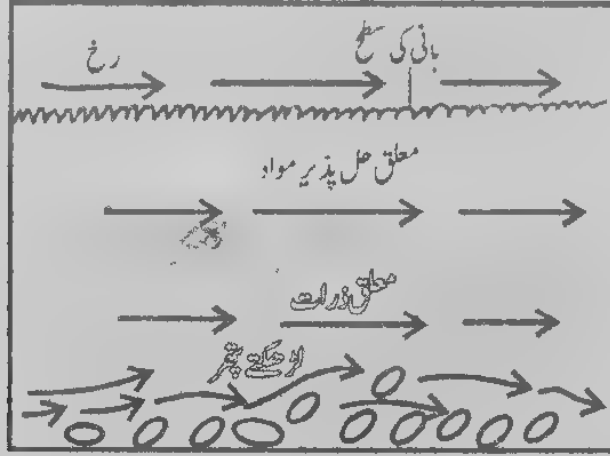 رخ
پانی کی سطح
معلق حل پذیر مواد
معلق ذرات
لڑھکتے پتھر